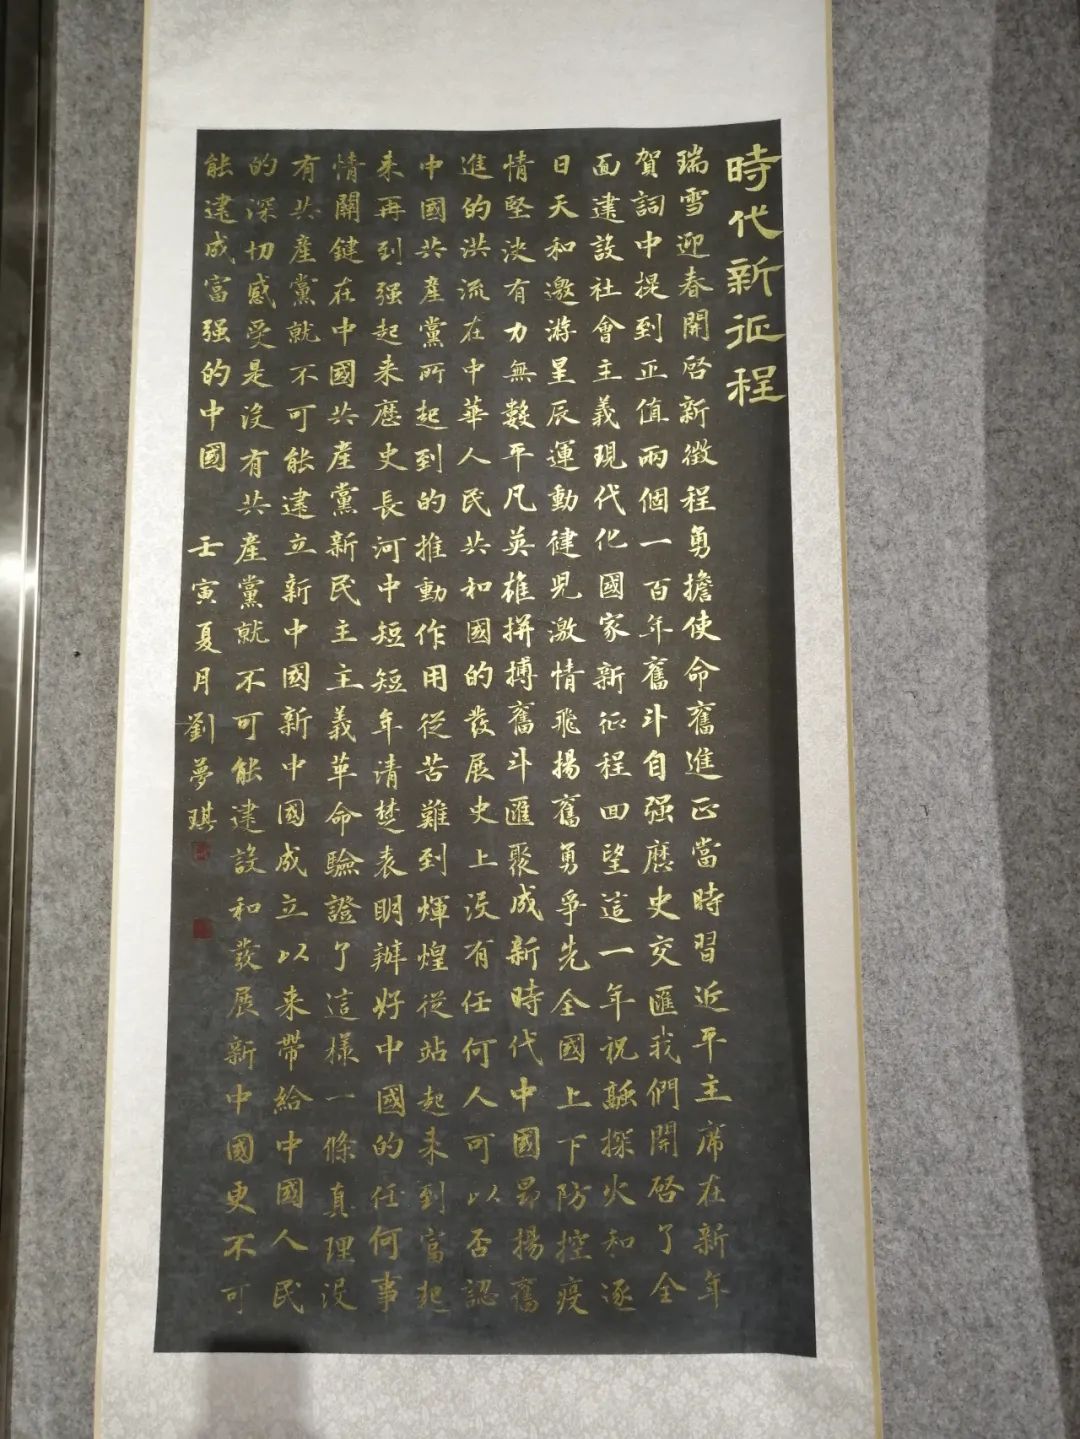 時代新征程
瑞雪迎春開啓新徵程勇擔使命奮進正當時習近平主席在新年
賀詞中提到正值兩個一百年奮斗自强歷史交匯我們開啓了全
面建設社會主義現代化國家新征程回望這一年祝融探火和逐
日天和遨游星辰運動健兒激情飛揚奮勇爭先全國上下防控疫
情堅决有力無數平凡英雄拼搏奮斗匯聚成新時代中國昂揚奮
進的洪流在中華人民共和國的發展史上没有任何人可以否認
中國共產黨所起到的推動作用從苦難到輝煌從站起来到富起
来再到强起来歷史長河中短短年清楚表明辦好中國的任何事
情關鍵在中國共產黨新民主主義革命驗證了這樣一條真理没
有共產黨就不可能建立新中國新中國成立以来帶給中國人民
的深切感受是没有共產黨就不可能建設和發展新中國更不可
能建成富强的中國 壬寅夏月劉夢琪